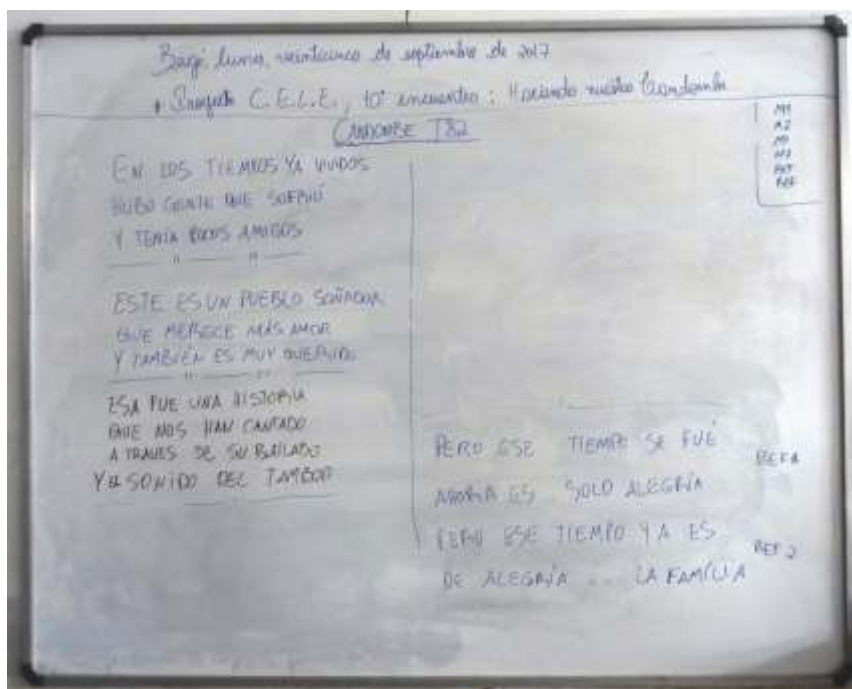 Bagé, lunes, veinticinco de septiembre de 2017
Proyecto C.E.L.E., 10° encuentro: Haciendo nuestro Candombe
CANDOMBE T82
M1
M2
M1
M2
REF
REF
EN LOS TIEMPOS YA VIVIDOS
HUBO GENTE QUE SUFRIÓ
Y TENÍA POCOS AMIGOS
ESTE ES UN PUEBLO SOÑADOR
QUE MERECE MÁS AMOR
Y TAMBIÉN ES MUY QUERIDO
ESA FUE UNA HISTORIA
QUE NOS HAN CANTADO
A TRAVES DE SU BAILADO
Y EL SONIDO DEL TAMBOR
PERO ESE TIEMPO SE FUÉ
REF 1
AHORA ES SOLO ALEGRÍA
PERO ESE TIEMPO YA ES
REF 2
DE ALEGRÍA ... LA FAMÍLIA